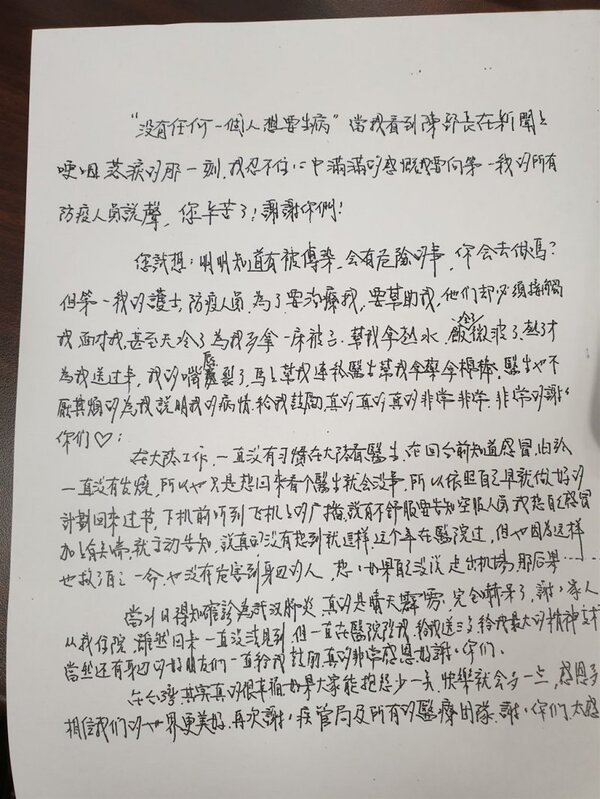 "沒有任何一個人想要生病"當我看到陳部長在新聞上
哽咽落淚的那一刻,我忍不住心中滿滿的感慨我要向第一我的所有
防疫人員說聲,您辛苦了!謝謝你們!
您試想:明明知道有被傳染,会有危險的事,你會去做嗎?
但第一我的護士,防疫人員,為了要治療我,要幫助我,他們却必須接觸
我,面对我,甚至天冷了為我多拿一床被子,幫我拿熱水,飯冷了微波了,熱了才
為我送过來,我的嘴唇裂了,馬上幫我連絡醫生幫我拿藥拿棉棒,醫生也不
厭其煩的為我說明我的病情,給我鼓勵,真的真的真的非常非常非常的謝謝
你們♡!
在大陸工作,一直沒有习慣在大陸看醫生,在回台前知道感冒,但
一直沒有发燒,所以也只是想回來看个醫生就会沒事,所以依照自己早就做好的
計劃回來过节,下机前听到飞机上的广播,說有不舒服要告知空服人員,我想自己感冒
加上有失嗅,就主动告知,說真的沒有想到就這样,这个年在醫院过,但也因為这样
也救了自己一命,也沒有危害到身边的人,想:如果自己沒說走出机場,那后果……
當21日得知確診為武汉肺炎,真的是晴天霹雳,完全嚇呆了,謝謝家人
从我住院,雖然回來一直沒見到,但一直在醫院陪我,給我送
當然还有身边的好朋友们一直給我鼓励真的非常感恩好謝謝你們。
在台灣其实真的很幸福如果大家能抱怨少一点,快樂就会多一点,感恩多
相信我们的世界更美好,再次謝謝疾管局及所有的醫療团隊,謝謝你們,太感